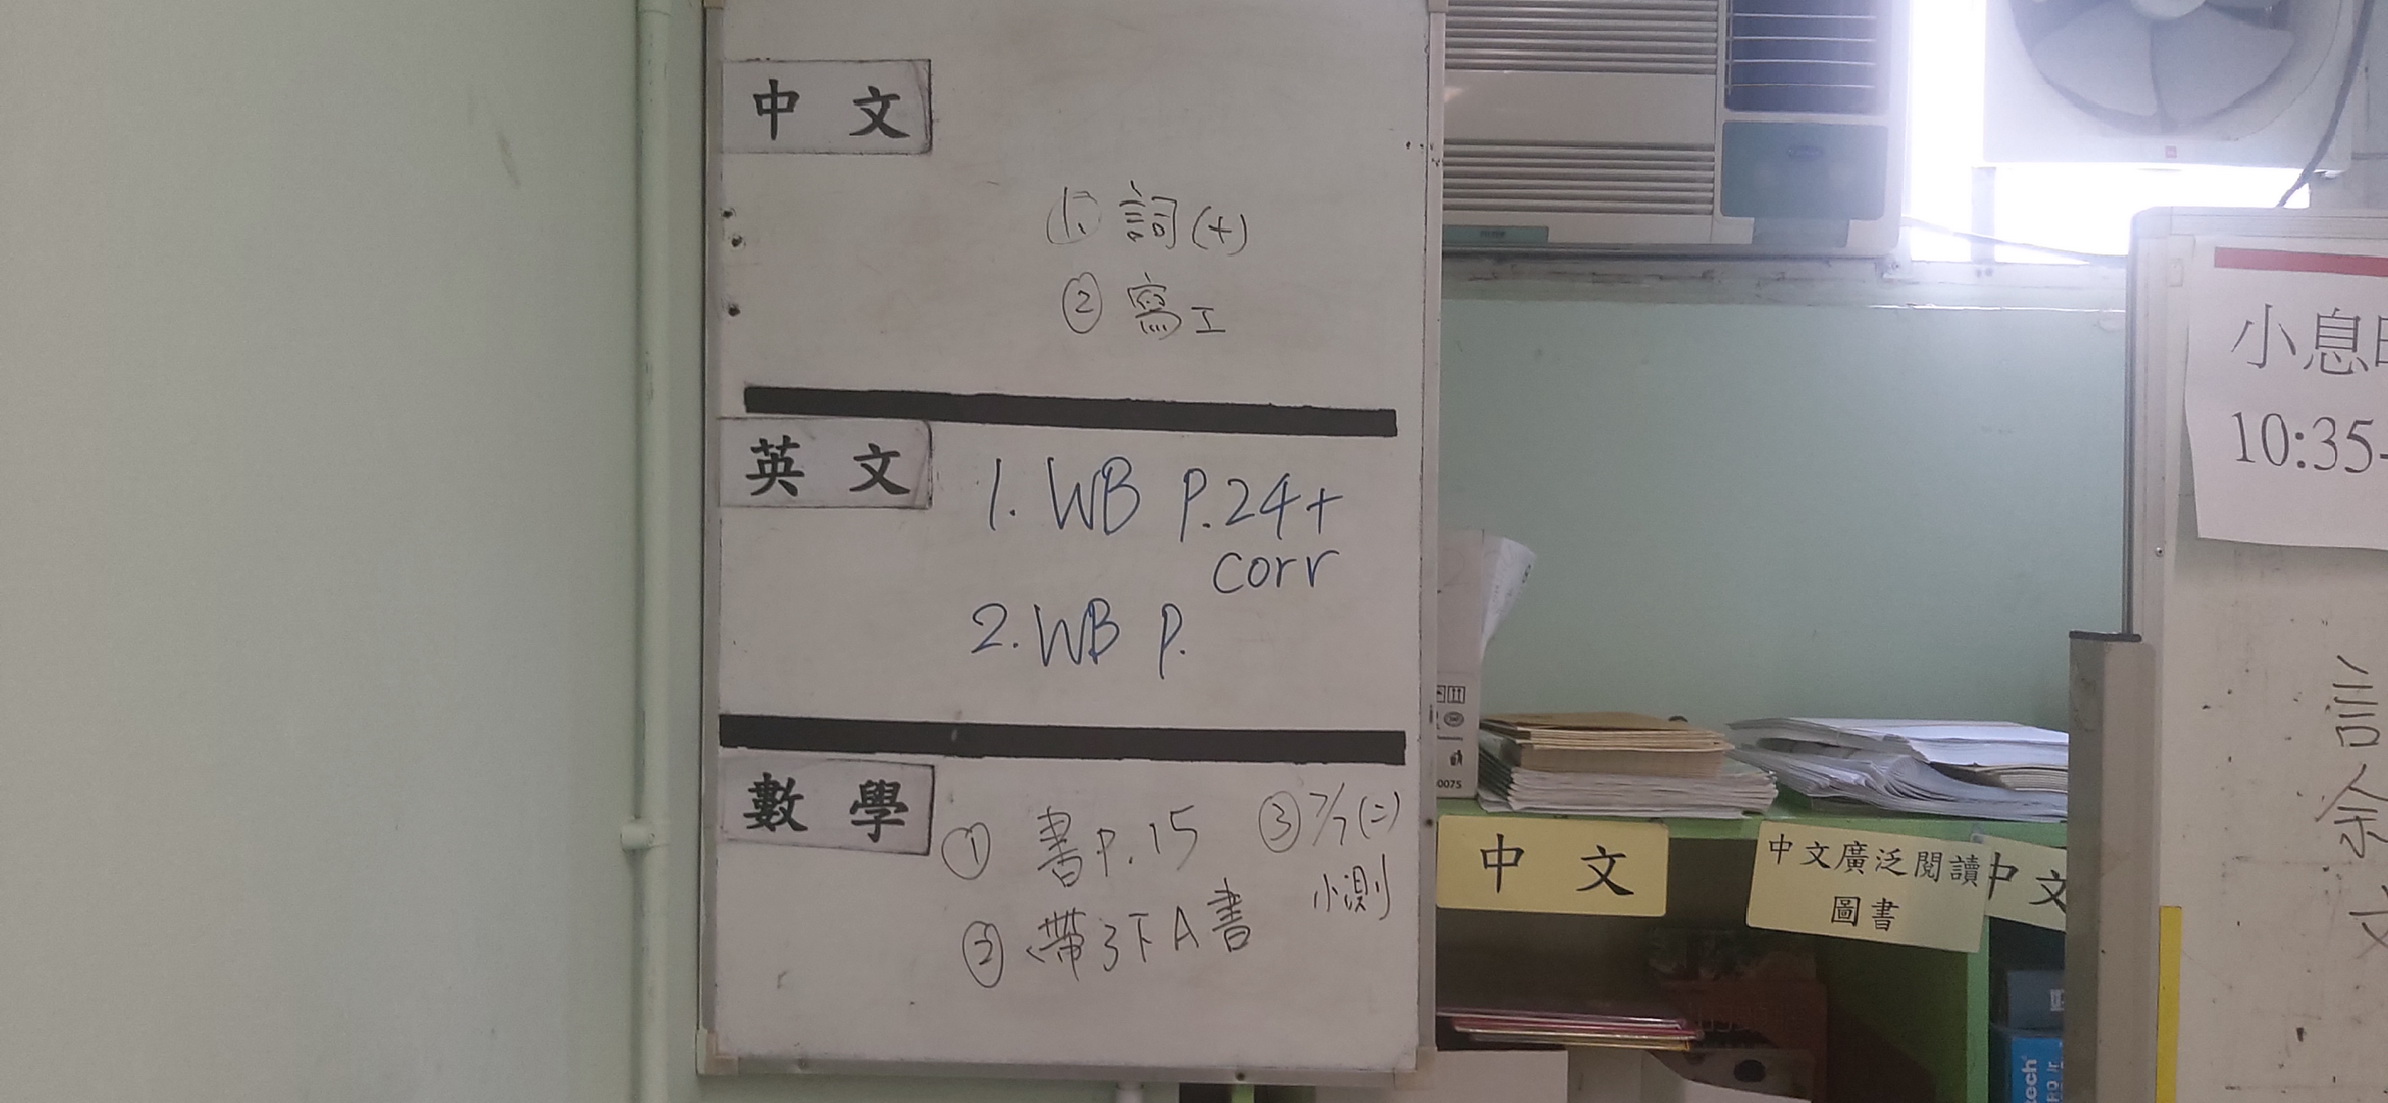 中文
1. 詞(十)
② 寫工
英文
1. WB P.24+
corr
2. WB P.
數學
① 書P.15
② 帶3下A書
③ 7/7(二)
小測
小息
10:35-
中文
中文廣泛閱讀
圖書
中文
0075
言
余
文